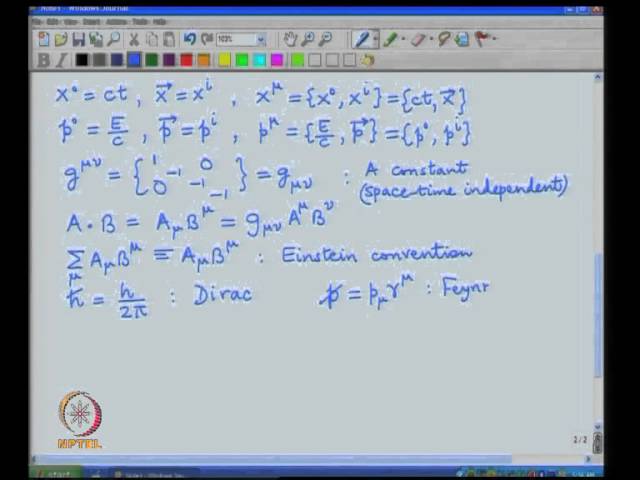 Note1 - Windows Journal
103%
B I
x⁰ = ct , x⃗ = xⁱ , x^μ = {x⁰, xⁱ} = {ct, x⃗}
p⁰ = E/c , p⃗ = pⁱ , p^μ = {E/c, p⃗} = {p⁰, pⁱ}
g^{μν} = {1 -1 0 0 -1 -1} = g_{μν} : A constant
(space-time independent)
A · B = A_μ B^μ = g_{μν} A^μ B^ν
Σ_μ A_μ B^μ ≡ A_μ B^μ : Einstein convention
ħ = h/2π : Dirac p̸ = p_μ γ^μ : Feynr
NPTEL
2/2